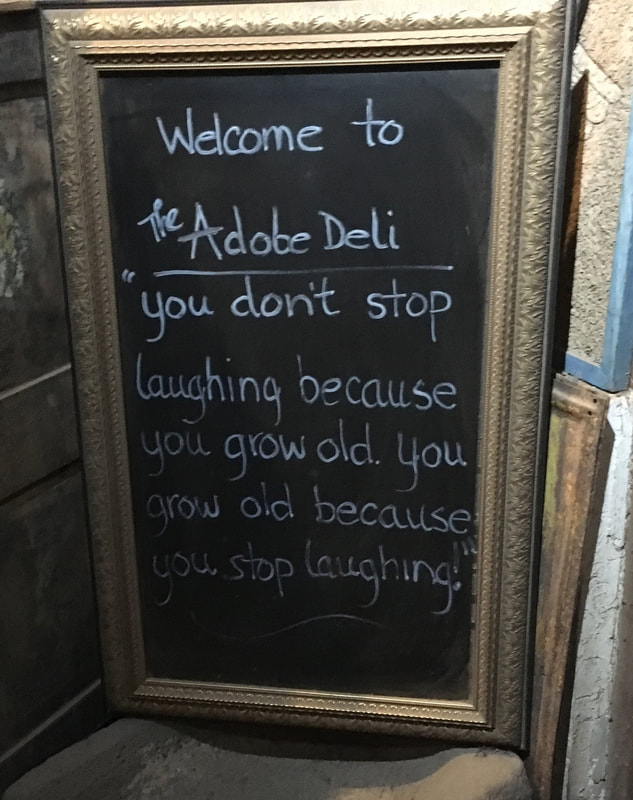 Welcome to
The Adobe Deli
"you don't stop
laughing because
you grow old. you
grow old because
you stop laughing!"